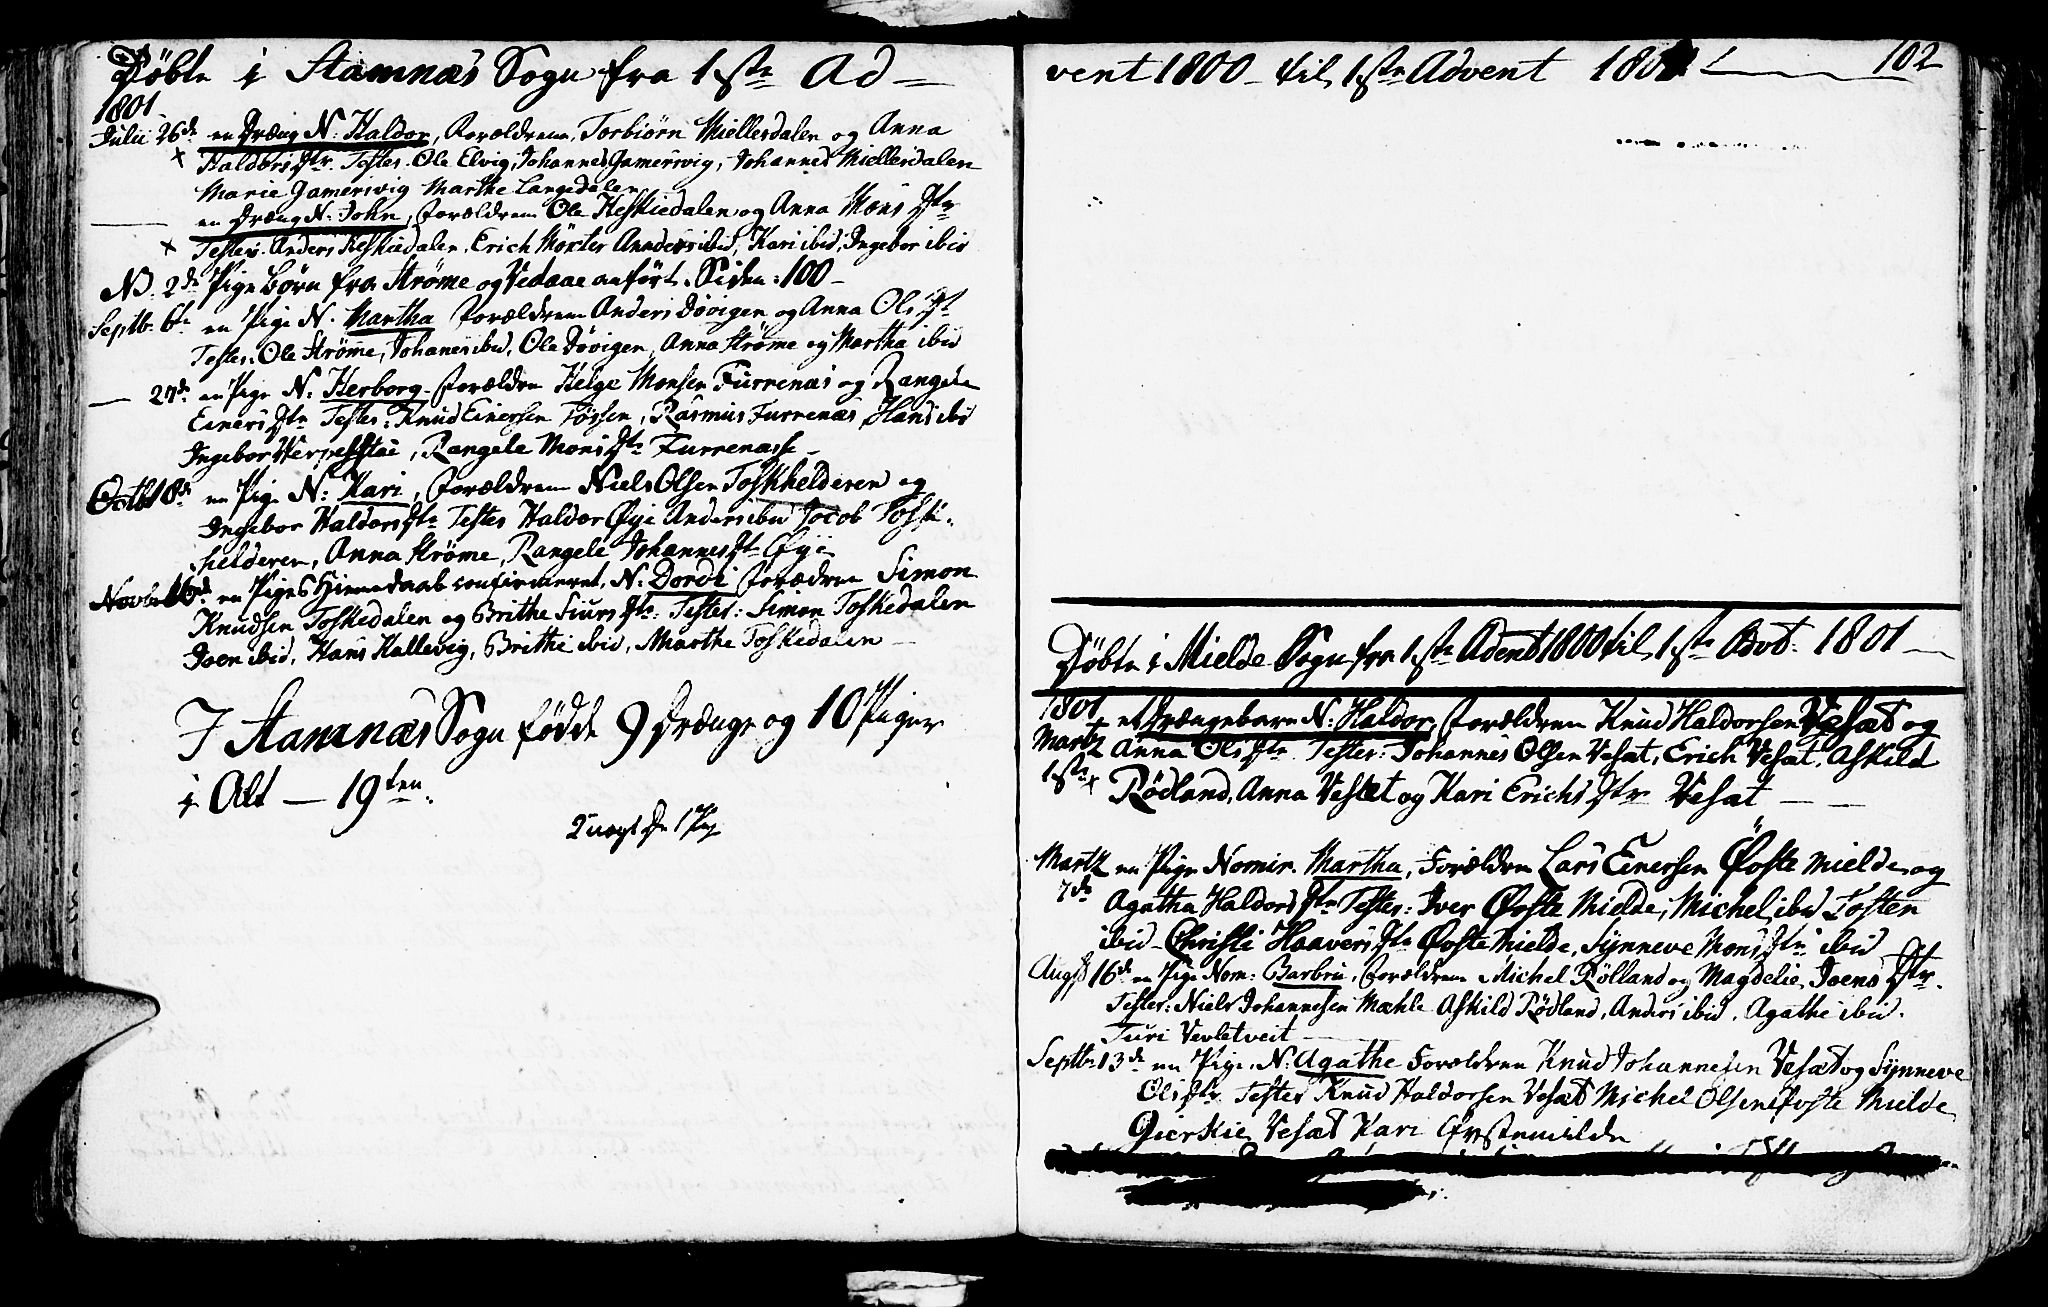 Døbte i Stamnæs Sogn fra 1ste Ad=
1801
Julii 26de en Dræng N: Haldor, Forældrene, Torbiørn Miellesdalen og Anna
Haldors Dtr. Testes. Ole Elvig, Johannes Gamersvig, Johannes Miellesdalen
Marie Gamersvig Marthe Langedalen
en Dræng N. John, Forældrene Ole Heskiedalen og Anna Mons Dtr
Testes. Anders Heskiedalen. Erich Anders ibid, Kari ibid, Ingebor ibid
NB. 2de Pige børn fra Strøme og Vedaae anført. Siden: 100 -
Septb. 6te en Pige N. Martha Forældrene Anders Døvigen og Anna Ols Dtr
Testes. Ole Strøme, Johanes ibid, Ole Døvigen, Anna Strøme og Martha ibid
— 27de en Pige N: Herborg. Forældre Helge Monsen Furrenæs og Rangele
Einers Dtr Testes: Knud Einersen Tøssen, Rasmus Furrenæs, Hans ibid
Ingebor, Rangele Mons Dtr Furrenæss -
Octb 18de en Pige N: Kari, Forældrene Niels Olsen Toskhelderen og
Ingebor Haldors Dtr Testes Haldor Øye Anders ibid Jocob Toski-
helderen, Anna Strøme, Rangele Johannes Dtr Øye
Novb. en Piges Hiemedaab confirmeret. N: Dordi Forædre Simon
Knudsen Toskedalen og Brithe Siurs Dtr: Testes: Simon Toskedalen
Joen ibid, Hans Kallevig, Brithe ibid, Marthe Toskedalen —
I Stamnæs Sogn fødde 9 Drænge og 10 Piger
i Alt — 19ten.
2 uægt De 1 Pig
vent 1800 - til 1ste Advent 1801
102
Døbte i Mielde Sogn fra 1ste Advent 1800 til 1ste Advt. 1801 —
1801
+ et Drængebarn N: Haldor, Forældrene Knud Haldorsen Vesæt og
Martz Anna Ols Dtr. Testes: Johannes Olsen Vesæt, Erich Vesæt. Askild
1ste Rødland, Anna Vesæt og Kari Erichs Dtr Vesæt — —
Martz en Pige Nomin. Martha, Forældre Lars Einersen Øvste Mielde og
7de Agatha Haldors Dtr Testes: Iver Øvste Mielde, Michel ibid Tosten
ibid - Christi Haavers Dtr Øvste Mielde, Synneve Mons Dtr ibid
Augst 16de en Pige Nom: Barbru, Forældrene Michel Rølland og Magdelie Joens Dtr.
Testes: Niels Johannesen Mæhle Askild Rødland, Anders ibid, Agathe ibid.
Turi Vevletveit —
Septb 13de en Pige. N: Agathe Forældrene Knud Johannesen Vesæt og Synneve
Ols Dtr Testes Knud Haldorsen Vesæt Michel Olsen Øvste Mielde
Gierkie Vesæt Kari Øvstemielde